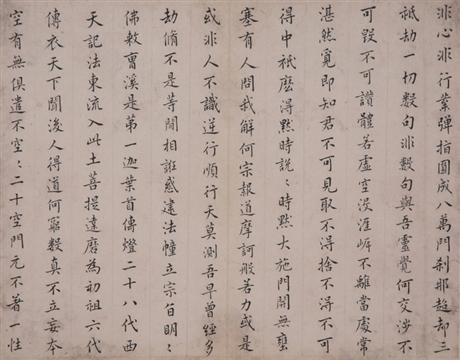 非心非行業彈指圓成八萬門刹那超却三
祇劫一切數句非數句與吾靈覺何交涉不
可毀不可讚體若虛空沒涯岸不離當處常
湛然覓即知君不可見取不得捨不得不可
得中祇麼得默時說〻時默大施門開無壅
塞有人問我解何宗報道摩訶般若力或是
或非人不識逆行順行天莫測吾早曾經多
劫脩不是等閒相誑惑建法幢立宗旨明〻
佛敕曹溪是第一迦葉首傳燈二十八代西
天記法東流入此土菩提達磨為初祖六代
傳衣天下聞後人得道何窮數真不立妄本
空有無俱遣不空〻二十空門元不著一性